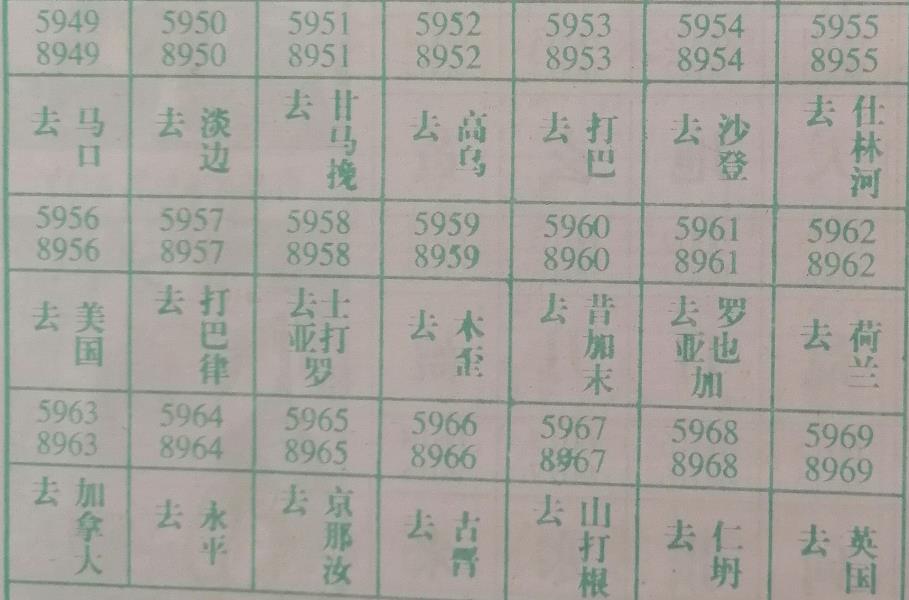 5949 5950 5951 5952 5953 5954 5955
8949 8950 8951 8952 8953 8954 8955
去马口 去淡边 去甘马挽 去高乌 去打巴 去沙登 去仕林河
5956 5957 5958 5959 5960 5961 5962
8956 8957 8958 8959 8960 8961 8962
去美国 去打巴律 去士打亚罗 去木歪 去昔加末 去罗也亚加 去荷兰
5963 5964 5965 5966 5967 5968 5969
8963 8964 8965 8966 8967 8968 8969
去加拿大 去永平 去京那汝 去古晋 去山打根 去仁坍 去英国